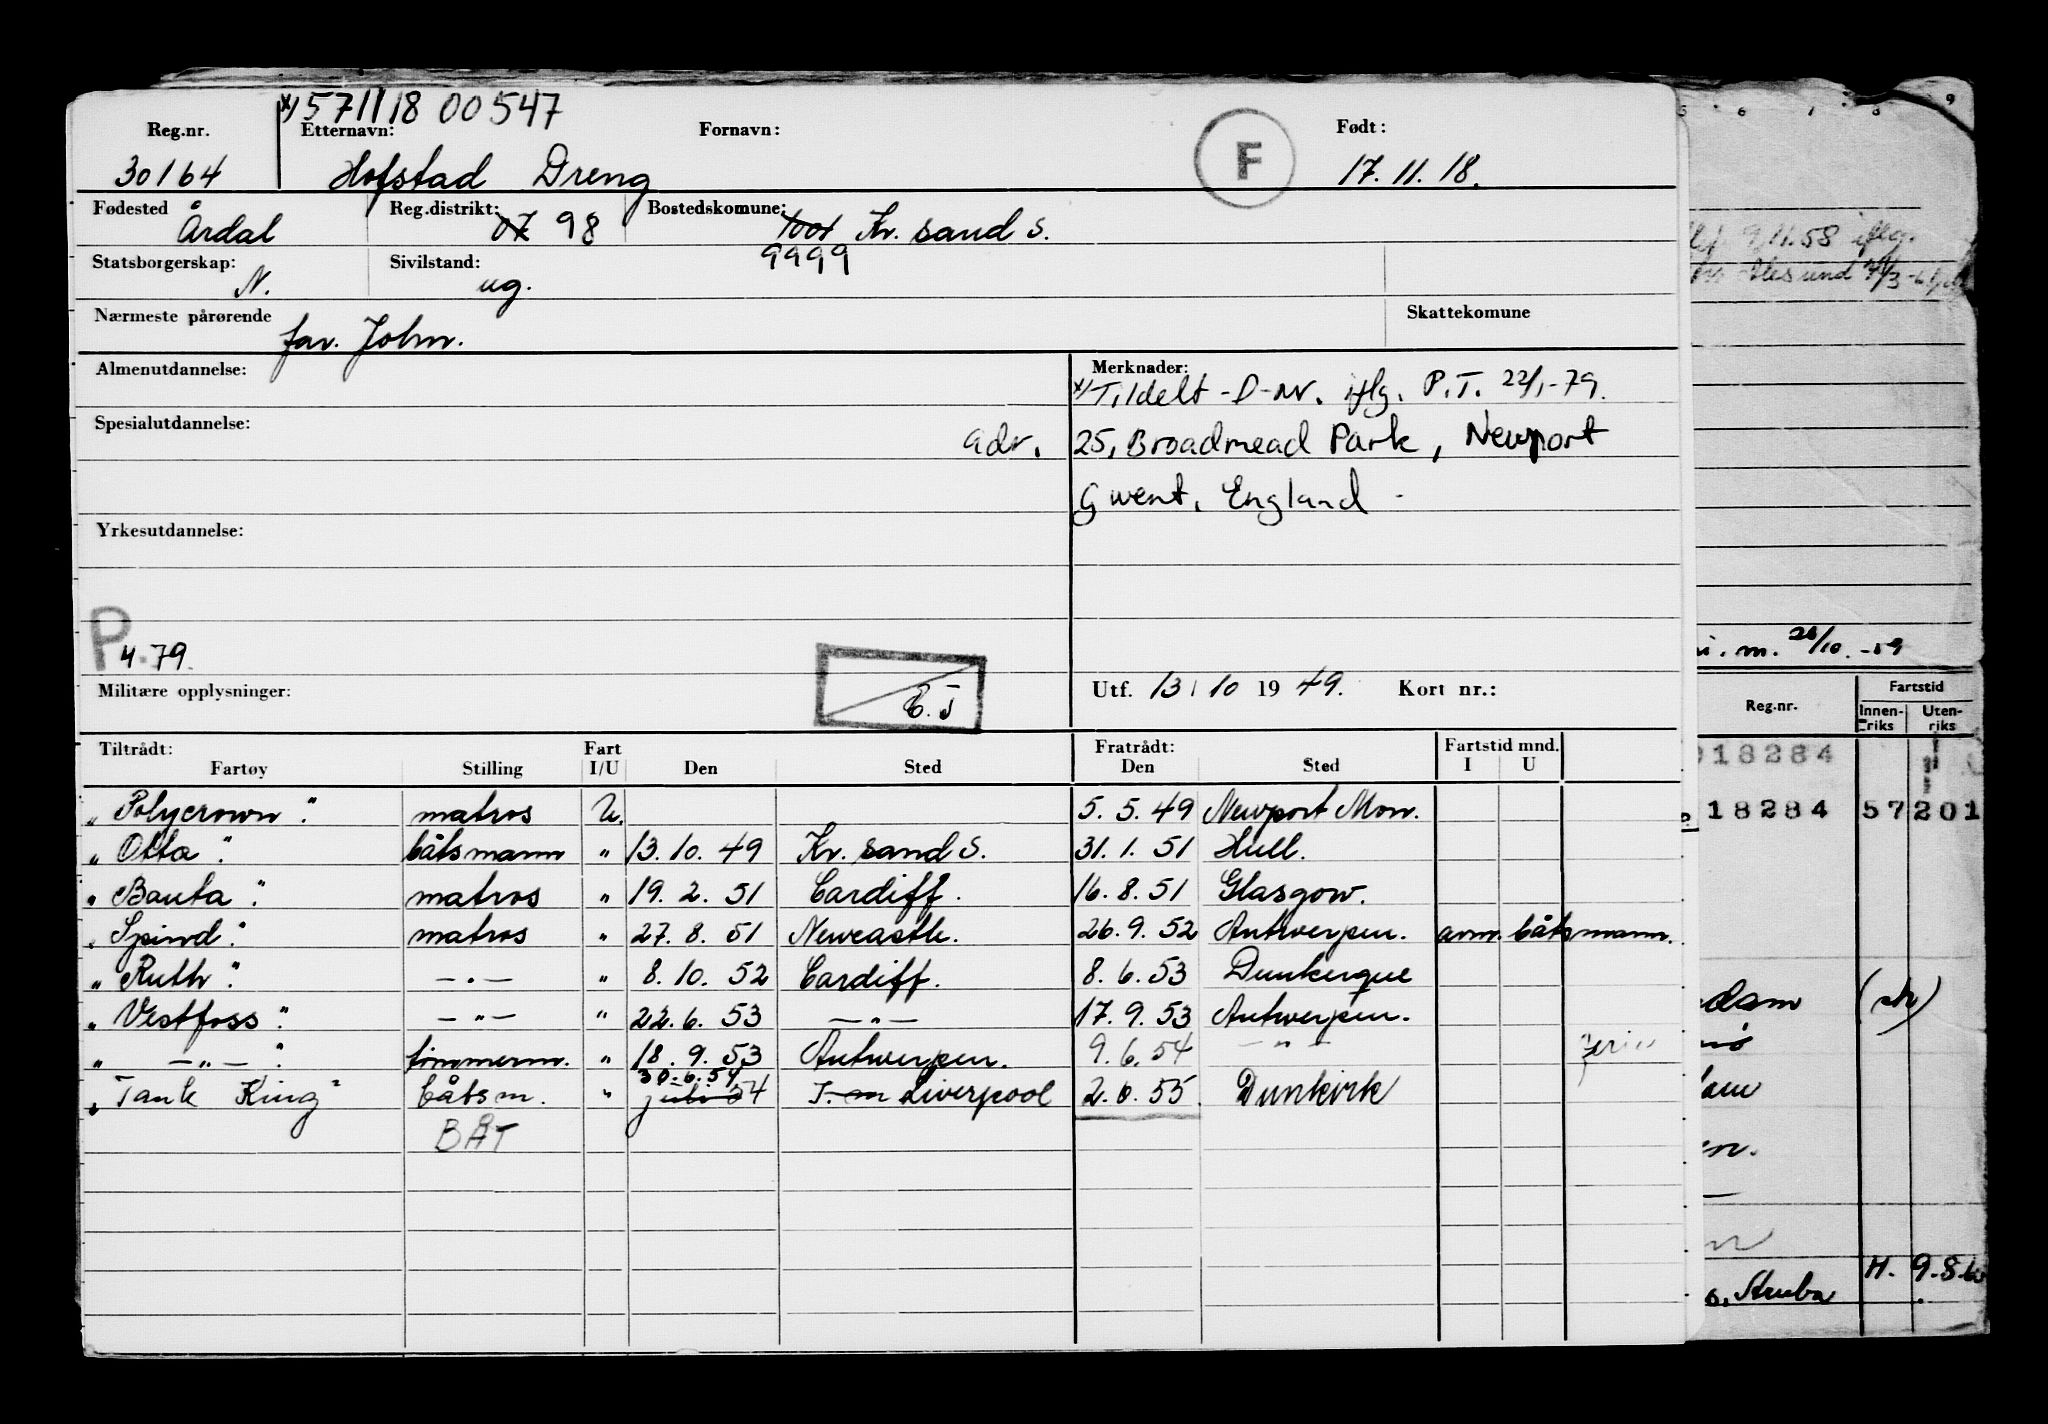 x) 571118 00547
Reg.nr. Etternavn: Fornavn: F Født:
30164 Hofstad Dreng 17.11.18.
Fødested Reg.distrikt: Bostedskomune:
Årdal 07 98 1001 Kr. sand S.
9999
Statsborgerskap: Sivilstand:
N. ug.
Nærmeste pårørende Skattekomune
far. John.
Almenutdannelse: Merknader:
x) Tildelt -D-nr. iflg. P.T. 22/1-79.
Spesialutdannelse:
adr. 25, Broadmead Park, Newport
Gwent, England -
Yrkesutdannelse:
P 4.79.
Militære opplysninger: Utf. 13/10 1949. Kort nr.:
Tiltrådt: Fart Fratrådt: Fartstid mnd.
Fartøy Stilling I/U Den Sted Den Sted I U
"Polycrown" matros U. 5.5.49 Newport Mon.
"Otta" båtsmann " 13.10.49 Kr. sand S. 31.1.51 Hull.
"Bauta" matros " 19.2.51 Cardiff. 16.8.51 Glasgow.
"Spind" matros " 27.8.51 Newcastle. 26.9.52 Antwerpen. avm. båtsmann.
"Ruth" -"- " 8.10.52 Cardiff. 8.6.53 Dunkerque
"Vestfoss" -"- " 22.6.53 -"- 17.9.53 Antwerpen.
" -"- " tømmerm. " 18.9.53 Antwerpen. 9.6.54 -"-
30.6.54
"Tank King" båtsm. " juli 54 Liverpool 2.8.55 Dunkirk
BÅT
5 6 7 8 9
9/11.58 iflg.
Ålesund
i.m. 28/10.-59
Reg.nr. Fartstid
Innenriks Utenriks
018284
18284 57 201
dam
en.
Aruba H. 9.8.60